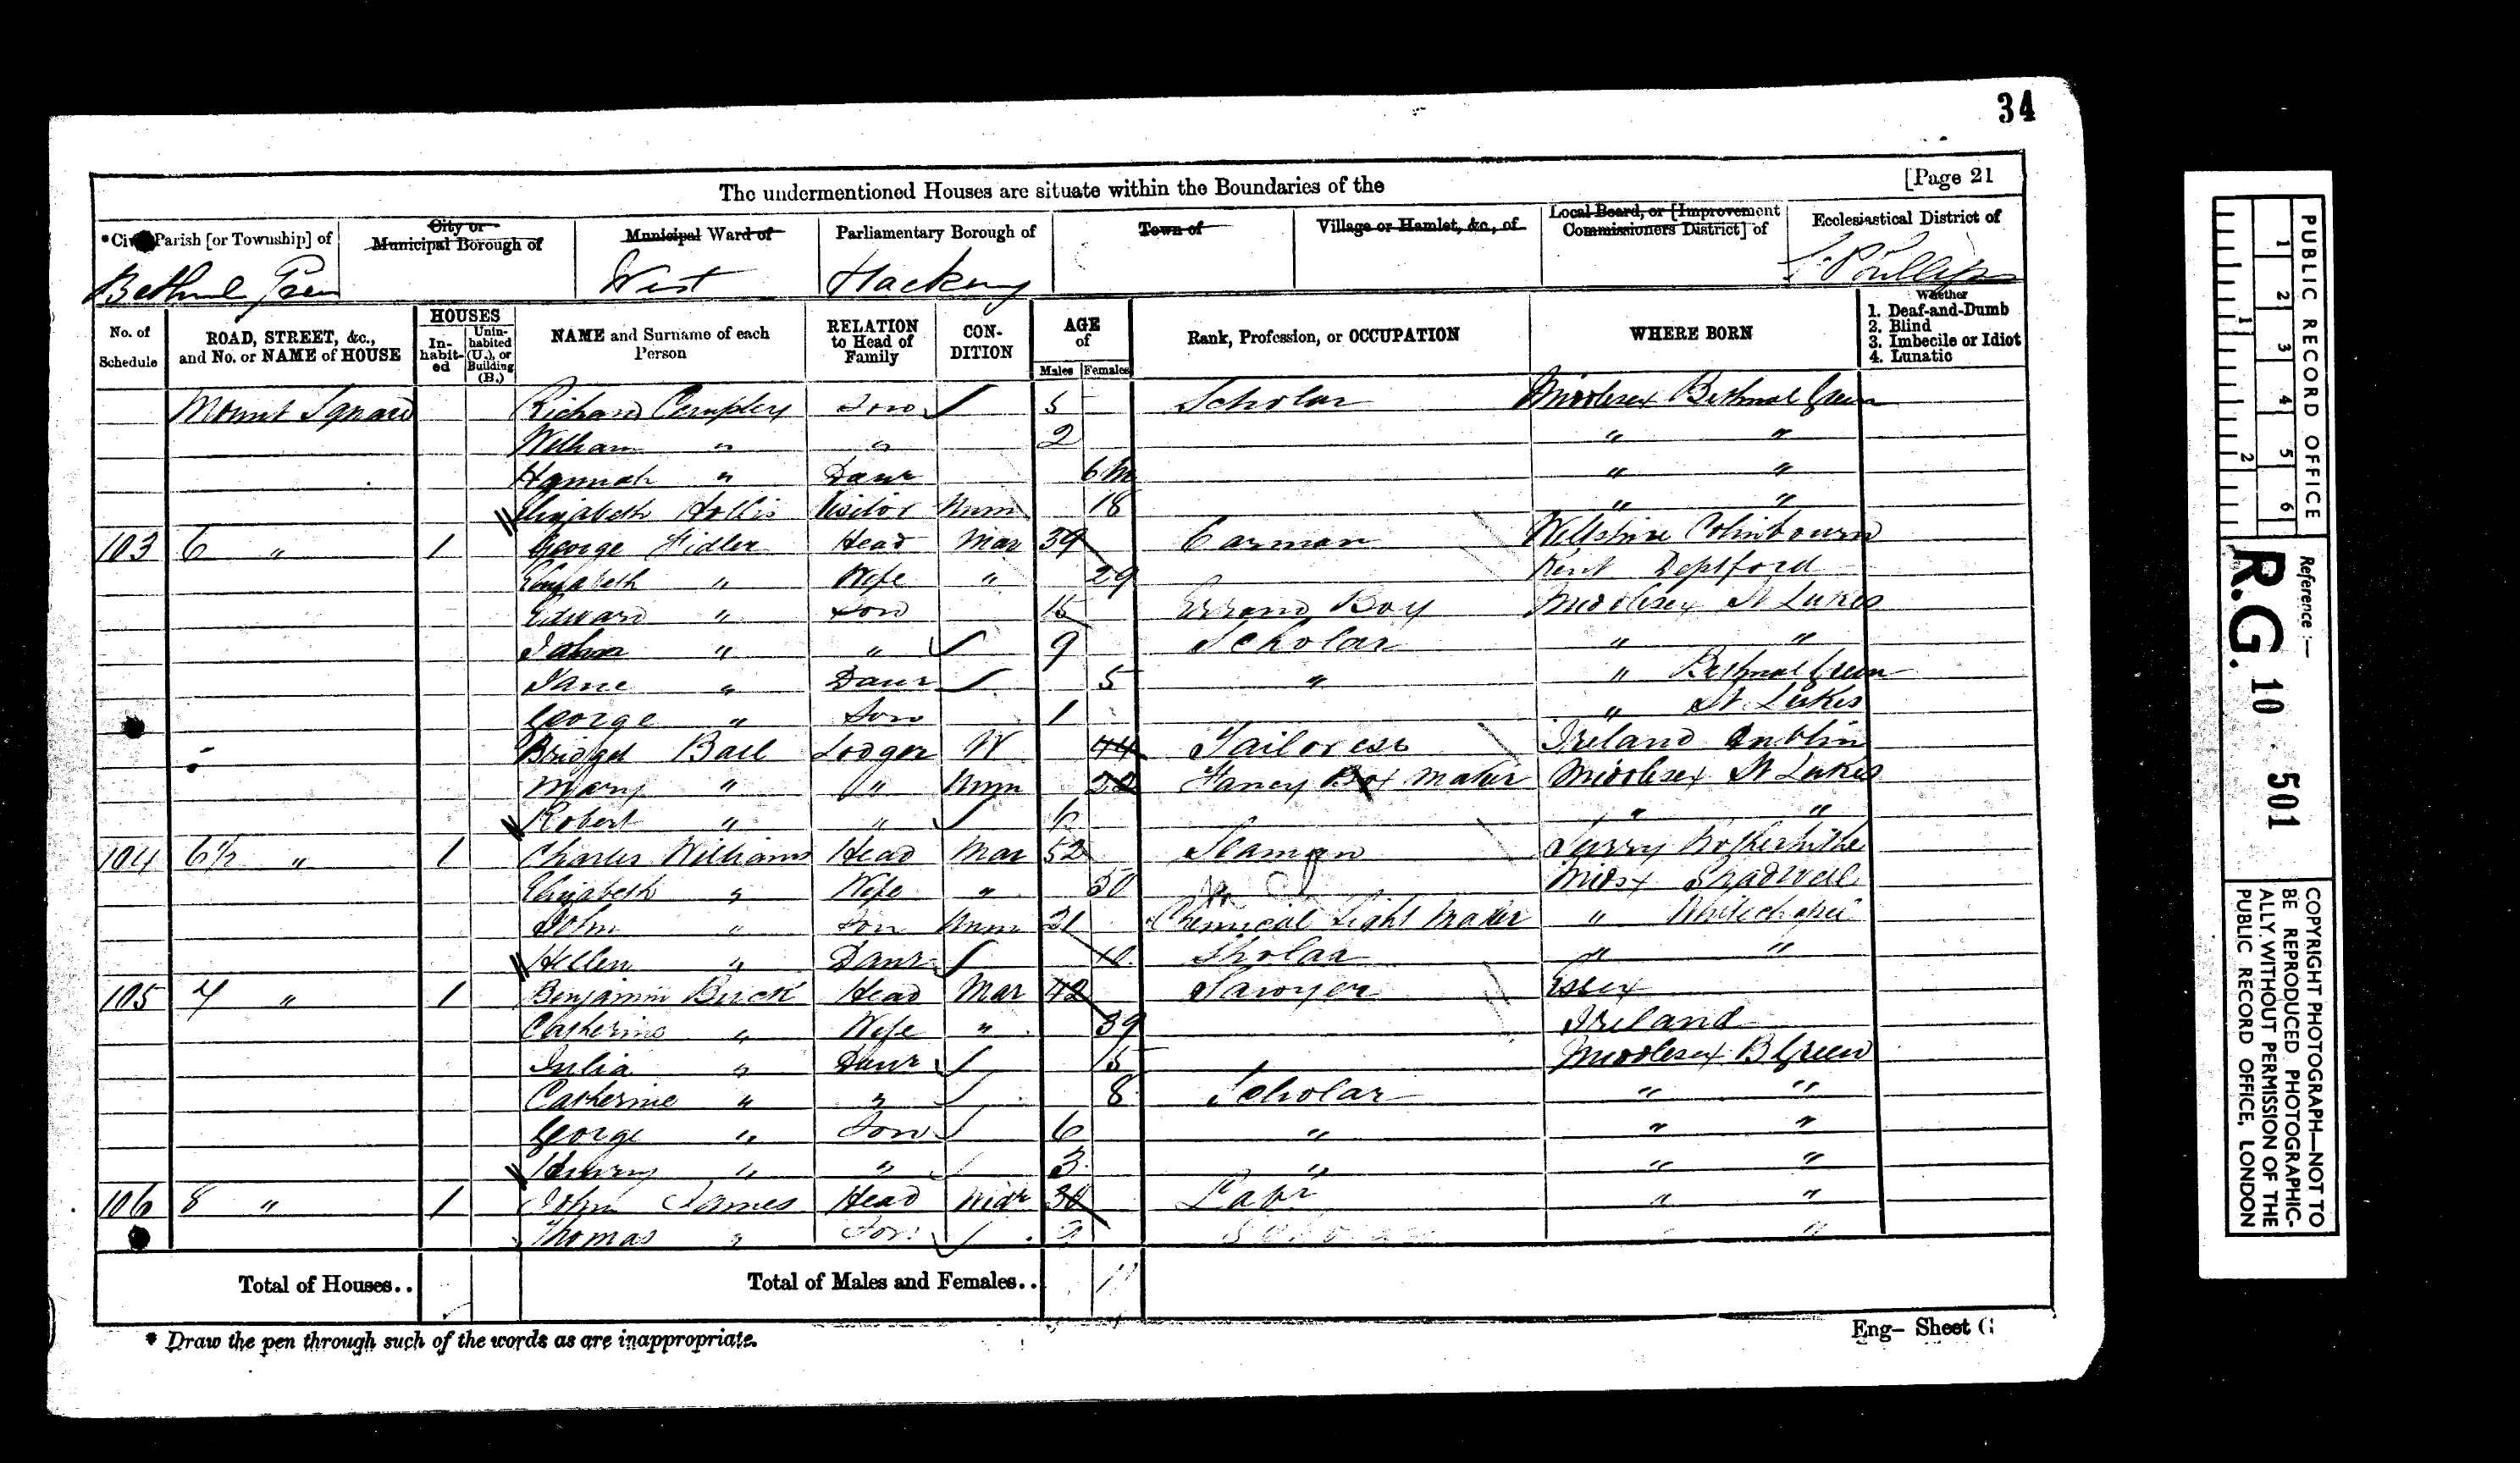 34
The undermentioned Houses are situate within the Boundaries of the [Page 21
Parish [or Township] of
City or Municipal Borough of
Municipal Ward of
Parliamentary Borough of
Town of
Village or Hamlet, &c., of
Local Board, or [Improvement Commissioners District] of
Ecclesiastical District of
Bethnal Green West Hackney St Phillips
No. of Schedule
ROAD, STREET, &c., and No. or NAME of HOUSE
HOUSES
In-habit-ed
Unin-habited (U.), or Building (B.)
NAME and Surname of each Person
RELATION to Head of Family
CON-DITION
AGE of
Males Females
Rank, Profession, or OCCUPATION
WHERE BORN
Whether
1. Deaf-and-Dumb
2. Blind
3. Imbecile or Idiot
4. Lunatic
Mount Square Richard Son 5 Scholar Middlesex Bethnal Green
William " " 2 " "
Hannah " Daur 6 m " "
Elizabeth Hollis Visitor Unm 18 " "
103 6 " 1 George Fidler Head Mar 39 Carman Wiltshire
Elizabeth " Wife " 29 Kent Deptford
Edward " Son 15 Errand Boy Middlesex St Lukes
John " " 9 Scholar " "
Jane " Daur 5 " " Bethnal Green
George " Son 1 " St Lukes
Bridget Ball Lodger W 44 Tailoress Ireland Dublin
Mary " " Unm 22 Fancy Box Maker Middlesex St Lukes
Robert " " 6 " "
104 6½ " 1 Charles Williams Head Mar 52 Seaman Surry Rotherhithe
Elizabeth " Wife " 50 Midsx Shadwell
John " Son Unm 21 Chemical Light Maker " Whitechapel
Hellen " Daur 10 Sholar " "
105 7 " 1 Benjamin Buck Head Mar 42 Sawyer Essex
Catherine " Wife " 39 Ireland
Julia " Daur 15 Middlesex B Green
Catherine " " 8 Scholar " "
George " Son 6 " " "
Henry " " 3 " " "
106 8 " 1 John James Head Widr 30 Labr " "
Thomas " Son 9 "
Total of Houses..
Total of Males and Females..
* Draw the pen through such of the words as are inappropriate.
Eng- Sheet
PUBLIC RECORD OFFICE
1 2 3 4 5 6
1 2
Reference :—
R.G. 10 501
COPYRIGHT PHOTOGRAPH—NOT TO
BE REPRODUCED PHOTOGRAPHIC-
ALLY WITHOUT PERMISSION OF THE
PUBLIC RECORD OFFICE, LONDON